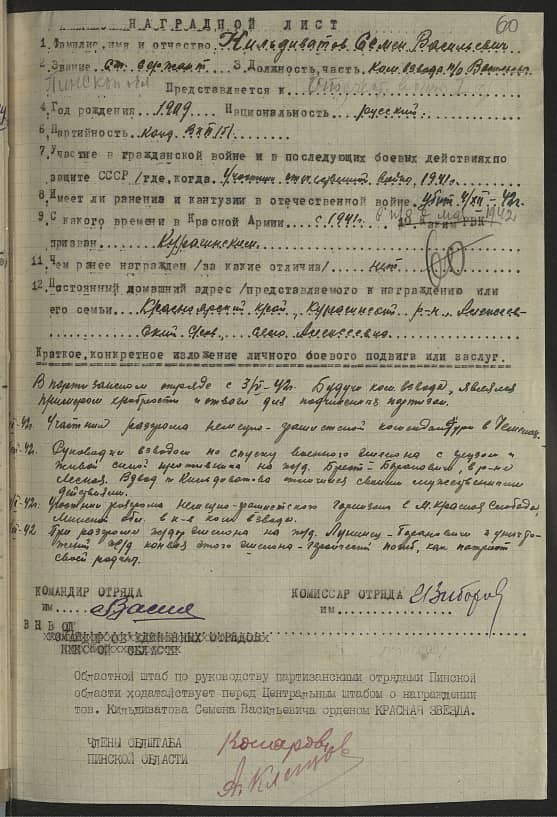 60
НАГРАДНОЙ ЛИСТ
1. Фамилия, имя и отчество Кильдиватов Семен Васильевич
2. Звание ст. сержант 3. Должность, часть. Ком. взвода п/о
Пинской обл Представляется к
4. Год рождения 1909 Национальность русский
6. Партийность канд. ВКП/б/
7. Участие в гражданской войне и в последующих боевых действиях по
защите СССР /где, когда. Участник отечественной войны, 1941 г.
8. Имеет ли ранения и кантузии в отечественной войне убит 4/XII-42г.
9. С какого времени в Красной Армии с 1941г. 10 Каким РВК
призван Курагинским
11. Чем ранее награжден /за какие отличия/ нет
12. Постоянный домашний адрес /представляемого к награждению или
его семьи. Красноярский край, Курагинский р-н, Алексеев-
ский с/сов., село Алексеевка
Краткое, конкретное изложение личного боевого подвига или заслуг.
В партизанском отряде с 3/VI-42г. Будучи ком. взвода, являлся
примером храбрости и отваги для подчиненных партизан.
42г. Участник разгрома немецко-фашистской комендатуры в
42г. Руководил взводом по спуску военного эшелона с грузом и
живой силой противника на ж/д. Брест-Баранович, в р-не
Лесная. Взвод и Кильдиватова отличился своими мужественными
действиями.
42г. Участник разгрома немецко-фашистского гарнизона в м. Красная Слобода,
Минской обл. в к-ве ком. взвода.
42 При разгроме эшелона на ж/д. Лунинец-Баранович и
конвоя этого эшелона - геройский погиб, как патриот
своей родины.
КОМАНДИР ОТРЯДА КОМИССАР ОТРЯДА
им. им.
ПИНСКОЙ ОБЛАСТИ
Областной штаб по руководству партизанскими отрядами Пинской
области ходатайствует перед Центральным штабом о награждении
тов. Кильдиватова Семена Васильевича орденом КРАСНАЯ ЗВЕЗДА.
ЧЛЕНЫ ОБЛШТАБА Комаров
ПИНСКОЙ ОБЛАСТИ А. Клещов